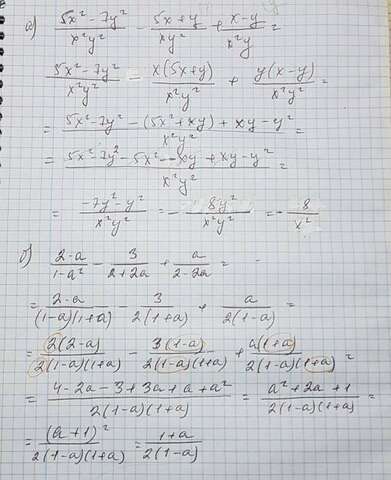 а) (5x² - 7y²)/(x²y²) - (5x + y)/(xy²) + (x - y)/(x²y) =
(5x² - 7y²)/(x²y²) - (x(5x + y))/(x²y²) + (y(x - y))/(x²y²) =
= (5x² - 7y² - (5x² + xy) + xy - y²)/(x²y²) =
= (5x² - 7y² - 5x² - xy + xy - y²)/(x²y²) =
= (-7y² - y²)/(x²y²) = - (8y²)/(x²y²) = - 8/x²
б) (2 - a)/(1 - a²) - 3/(2 + 2a) + a/(2 - 2a) =
= (2 - a)/((1 - a)(1 + a)) - 3/(2(1 + a)) + a/(2(1 - a)) =
= (2(2 - a))/(2(1 - a)(1 + a)) - (3(1 - a))/(2(1 - a)(1 + a)) + (a(1 + a))/(2(1 - a)(1 + a)) =
= (4 - 2a - 3 + 3a + a + a²)/(2(1 - a)(1 + a)) = (a² + 2a + 1)/(2(1 - a)(1 + a)) =
= (a + 1)²/(2(1 - a)(1 + a)) = (1 + a)/(2(1 - a))